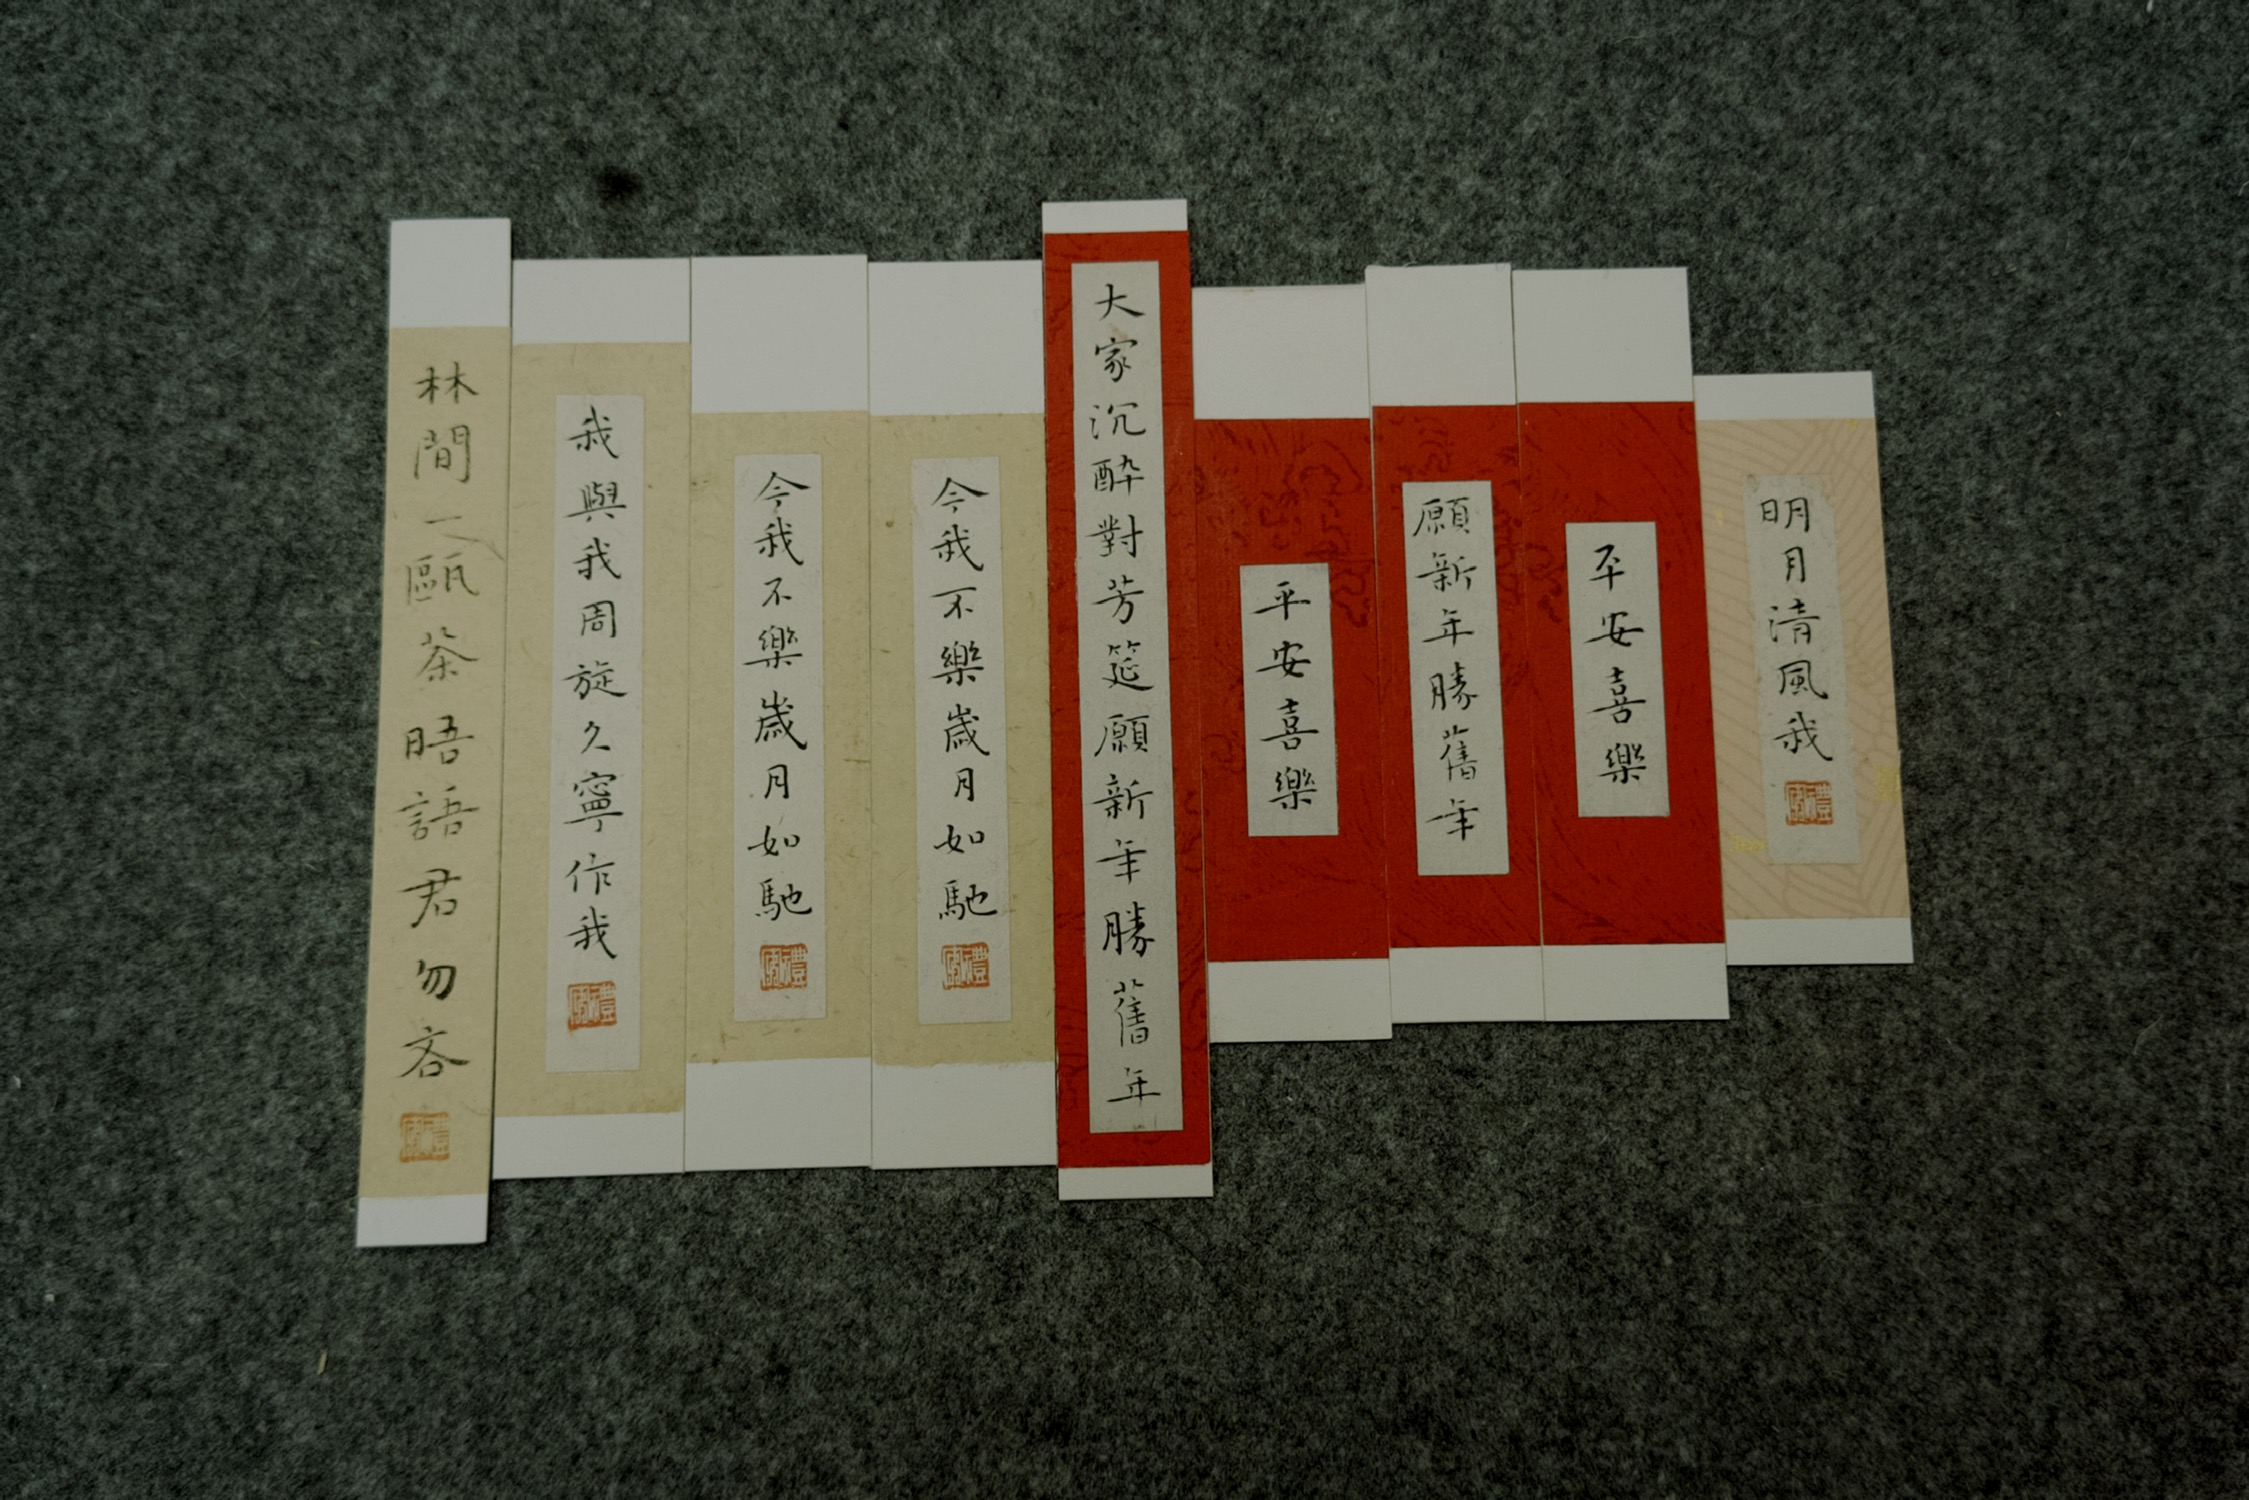 林間一甌茶晤語君勿吝
我與我周旋久寧作我
今我不樂歲月如馳
今我不樂歲月如馳
大家沉醉對芳筵願新年勝舊年
平安喜樂
願新年勝舊年
平安喜樂
明月清風我